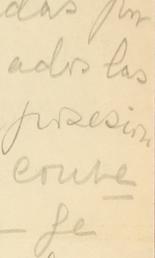 das por
ados las
posesion
conve
- ge